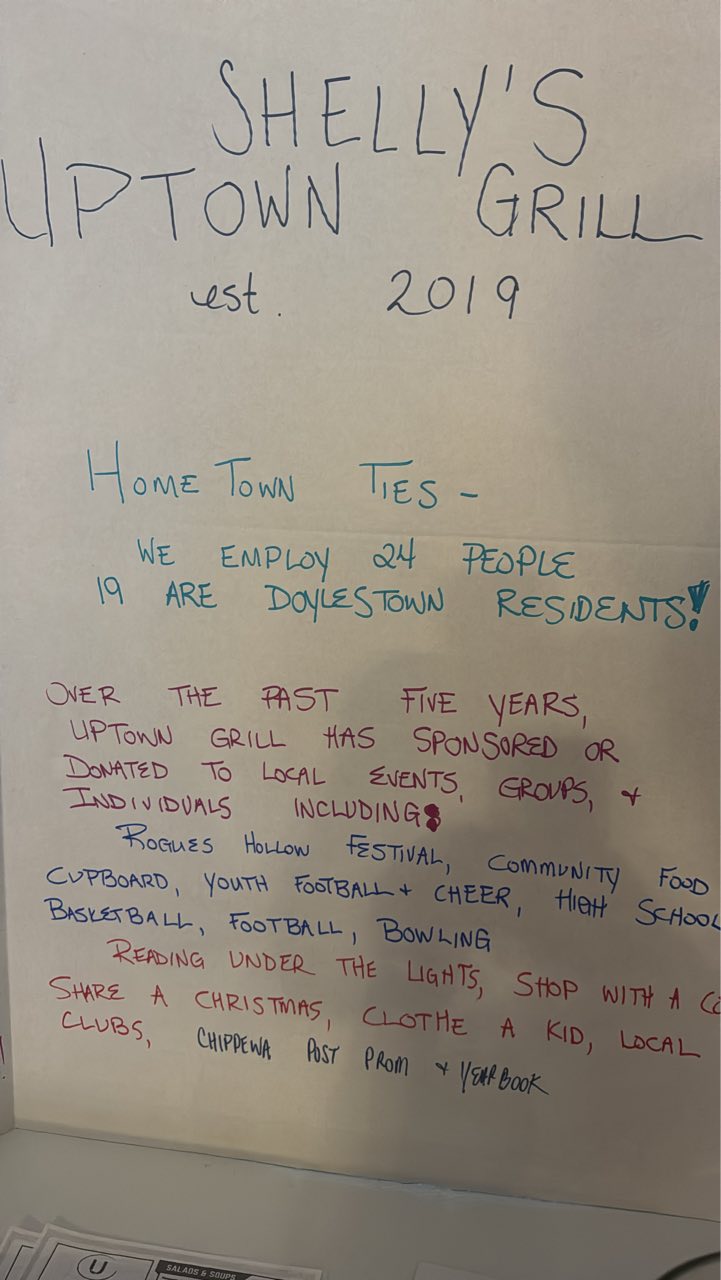 SHELLY'S
UPTOWN GRILL
est. 2019
HOME TOWN TIES -
WE EMPLOY 24 PEOPLE
19 ARE DOYLESTOWN RESIDENTS!
OVER THE PAST FIVE YEARS,
UPTOWN GRILL HAS SPONSORED OR
DONATED TO LOCAL EVENTS, GROUPS, +
INDIVIDUALS INCLUDING:
ROGUES HOLLOW FESTIVAL, COMMUNITY FOOD
CUPBOARD, YOUTH FOOTBALL + CHEER, HIGH SCHOOL
BASKETBALL, FOOTBALL, BOWLING
READING UNDER THE LIGHTS, SHOP WITH A
SHARE A CHRISTMAS, CLOTHE A KID, LOCAL
CLUBS, CHIPPEWA POST PROM + YEARBOOK
U
SALADS & SOUPS